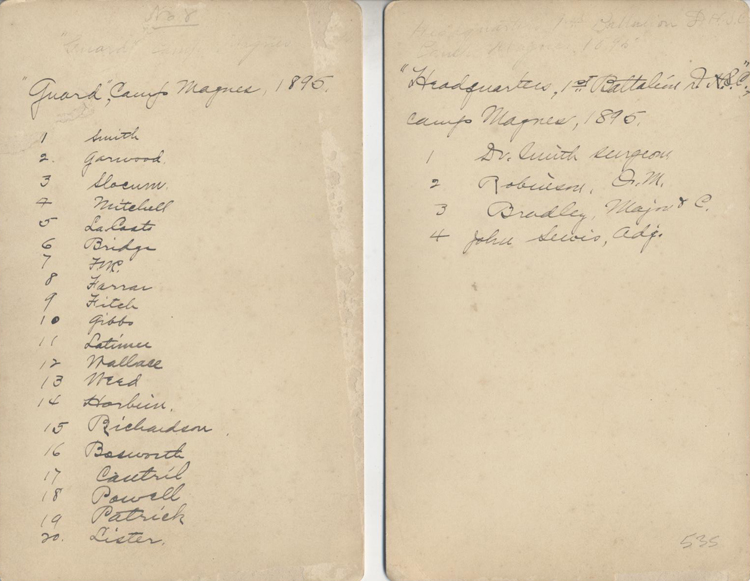 No 8
"Guard"
"Guard", Camp Magnes, 1895.
1 Smith
2. Garwood
3 Slocum.
4 Mitchell
5 LaCoste
6 Bridge
7
8 Farrar
9 Fitch
10 Gibbs
11 Latimer
12 Wallace
13 Weed
14
15 Richardson
16 Bosworth
17 Cantril
18 Powell
19 Patrick
20. Lister.
"Headquarters, 1st Battalion
Camp Magnes, 1895.
1 Dr. Smith surgeon
2 Robinson, Q.M.
3 Bradley, Major & C.
4 John Lewis, Adj.
535